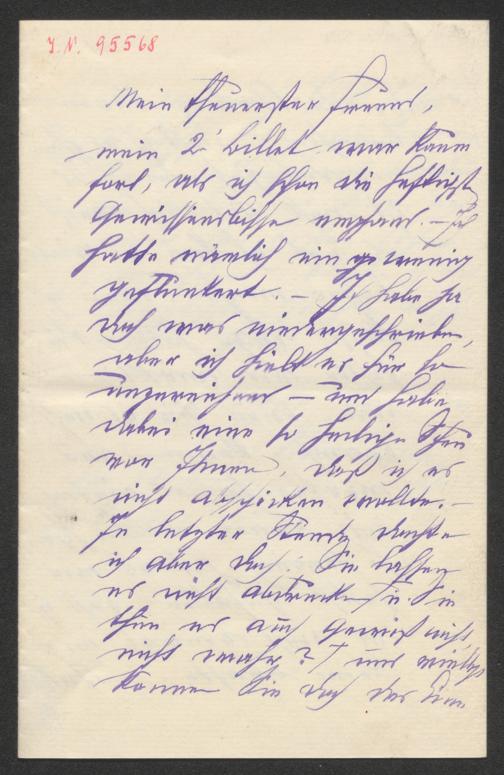 J. N. 95568
Mein theuerster Freund,
mein 2' Billet war kaum
fort, als ich schon die heftigsten
Gewissensbisse empfand. – Ich
hatte nämlich ein wenig
geflunkert. – Ich habe ja
doch was niedergeschrieben,
aber ich hielt es für so
unzureichend – und habe
dabei eine so heilige Scheu
vor Ihnen, daß ich es
nicht abschicken wollte. –
In letzter Stunde dachte
ich aber doch: Sie lassen
es nicht abdrucken u. Sie
thun es auch gewiß nicht,
nicht wahr? und vielleicht
können Sie doch das Eine